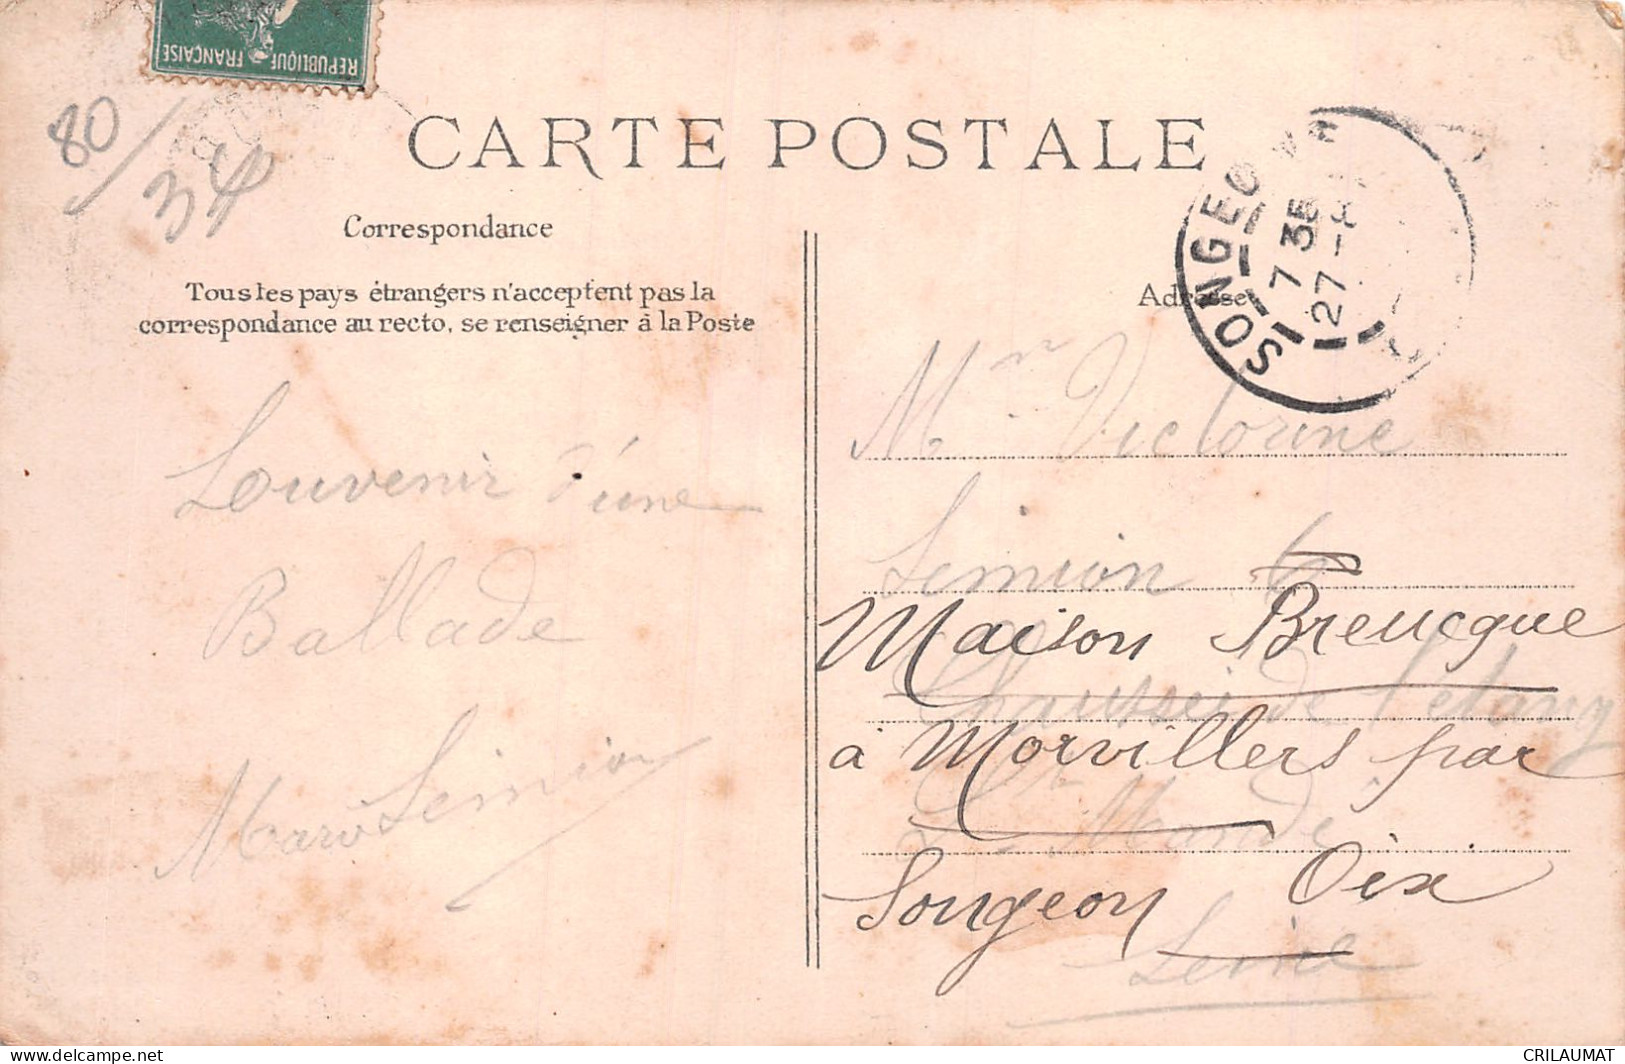 REPUBLIQUE FRANÇAISE
80/
34
CARTE POSTALE
Correspondance
Tous les pays étrangers n'acceptent pas la
correspondance au recto, se renseigner à la Poste
Souvenir d'une
Ballade
Simion
Adresse
SONGEO
7 35
27
Victorine
Simion
Chaussée de l'étang
St Mandé
Seine
Maison Breucque
à Morvillers par
Songeon Oix
delcampe.net
CRILAUMAT